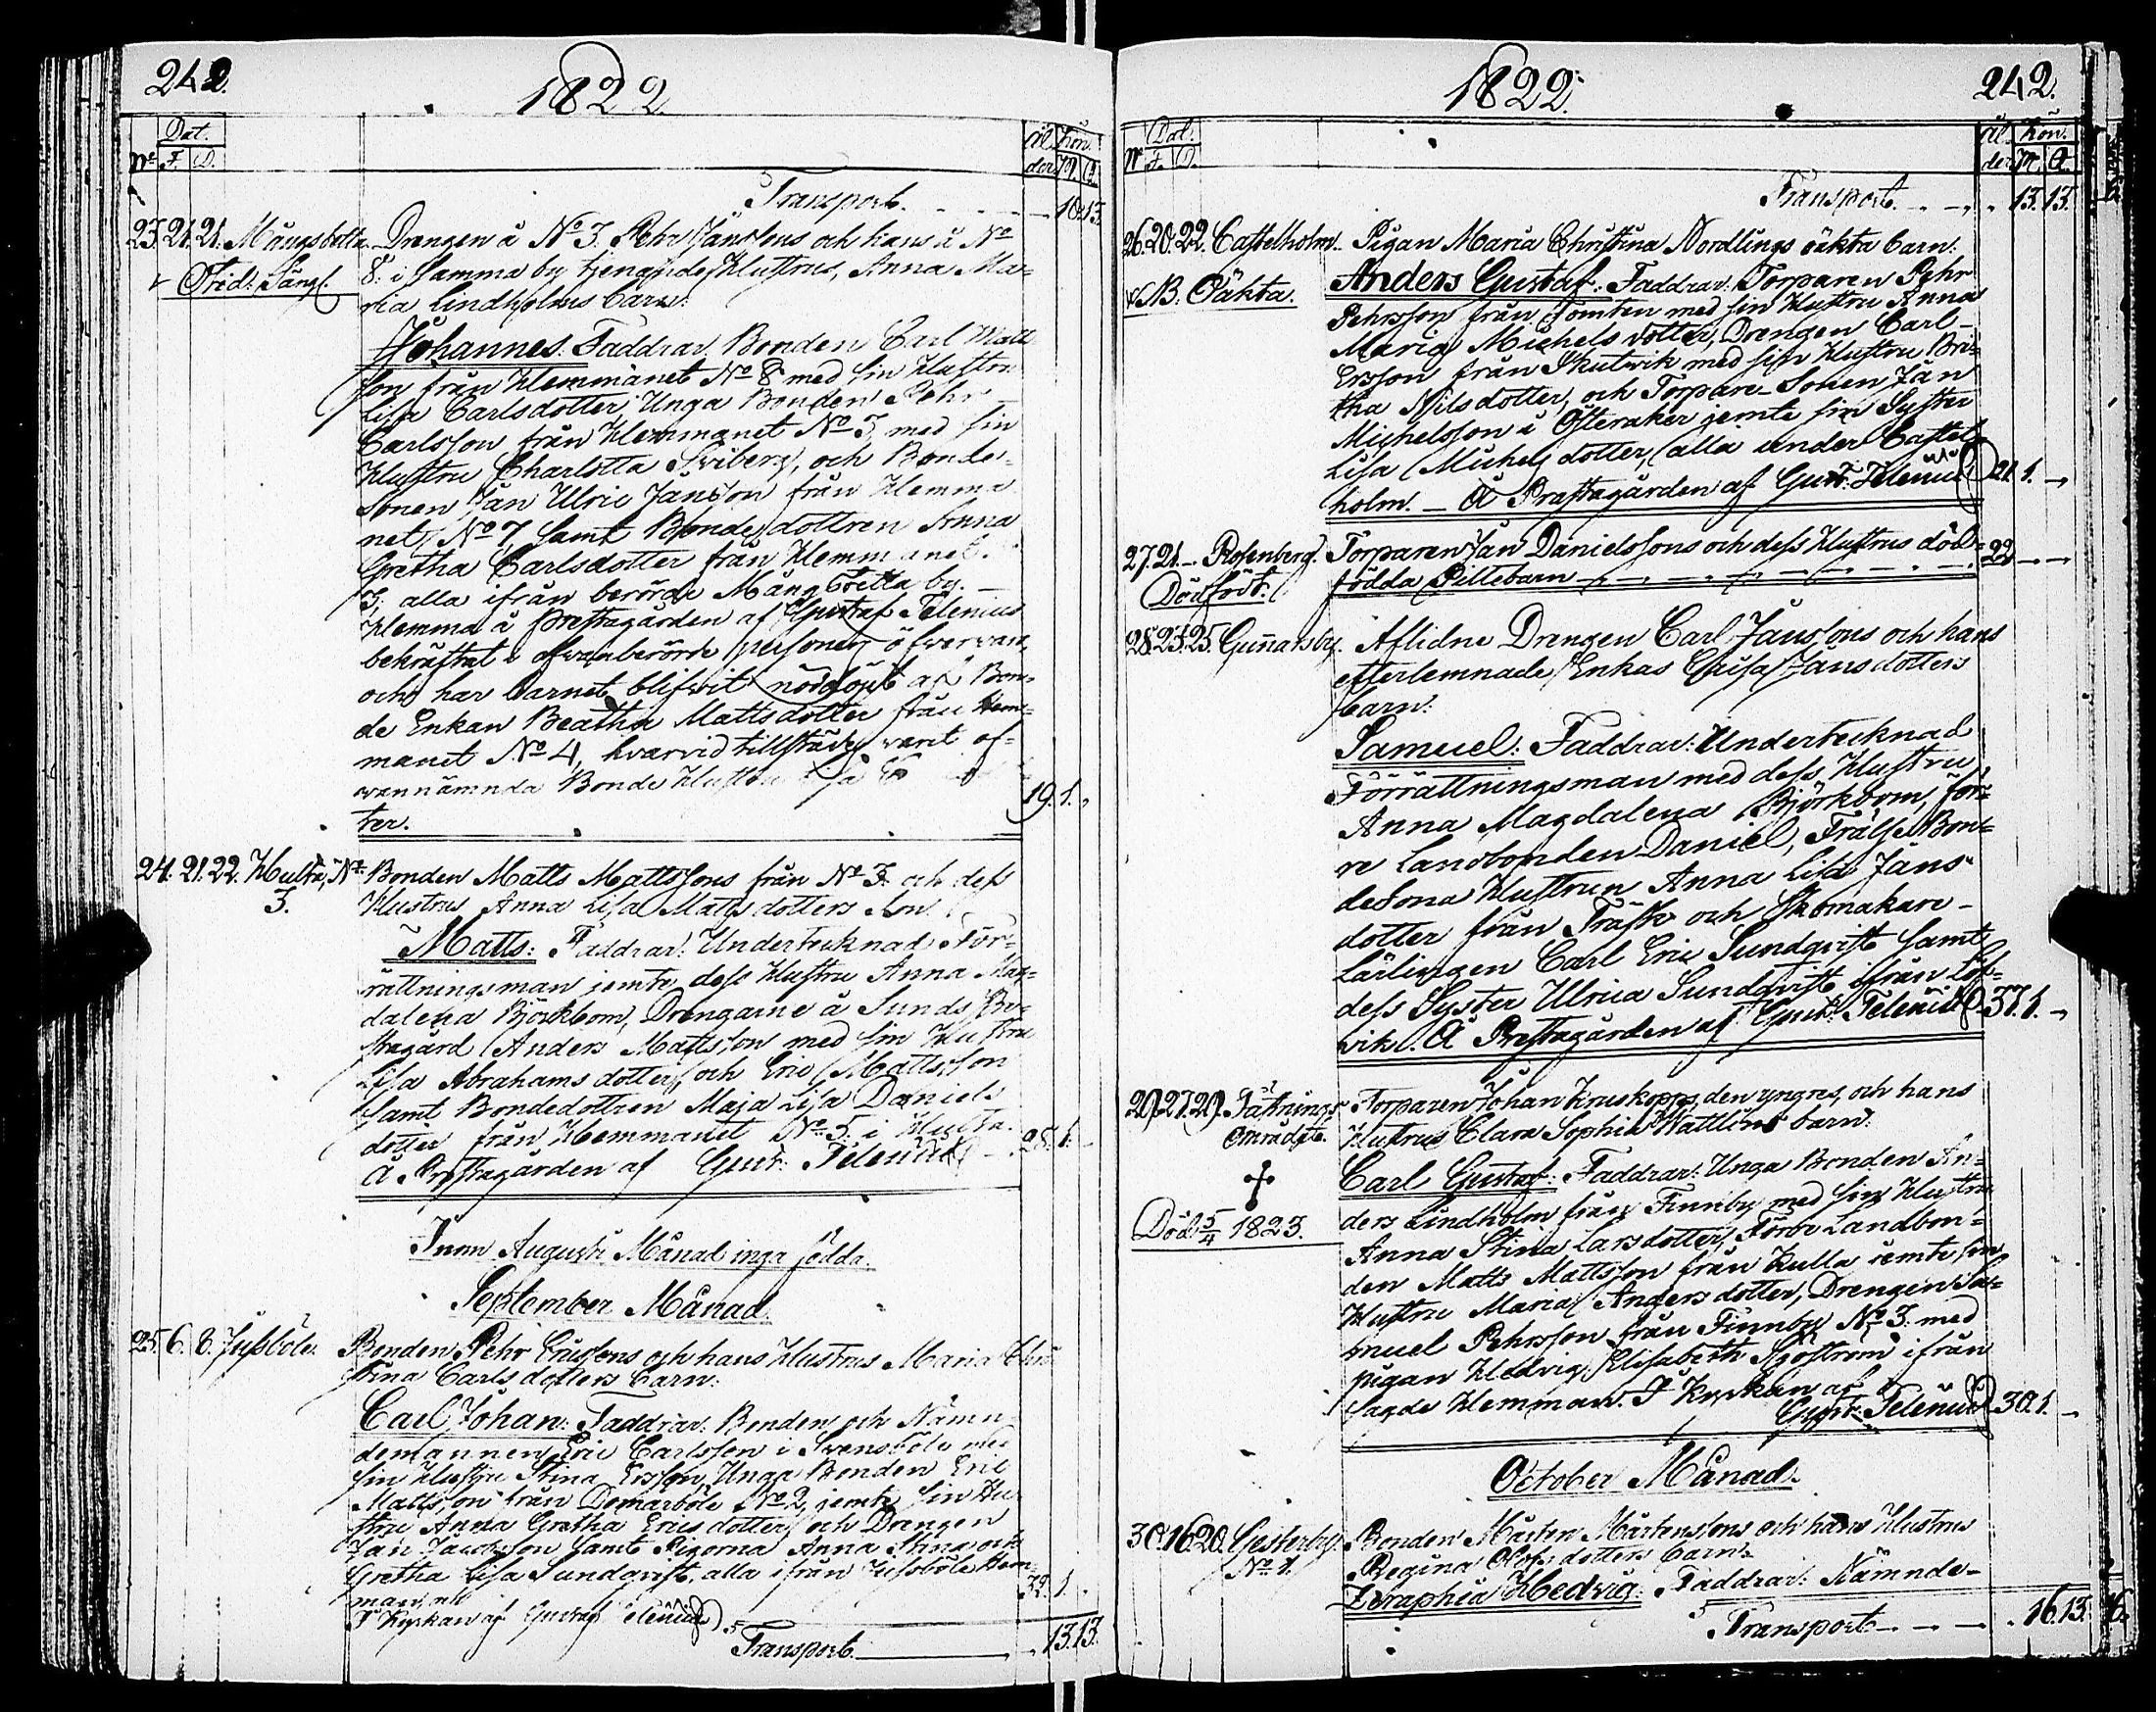 242.
1822.
Dat.
No F. D.
Ål Kön.
der M. Q.
Transport. 10.13.
23. 21. 21. Mångsbetta Drengen å No 3. Pehr Janssons och hans å No
Ofřid: Säng:
8. i Samma by tjenande Hustrus, Anna Ma-
ria Lindholms barn:
Johannes: Faddrar. Bonden Carl Matts
son från Hemmanet No 8 med sin Hustru
Lisa Carlsdotter, Unga Bonden Pehr
Carlsson från Hemmanet No 3, med sin
Hustru Charlotta Sviberg, och Bonde-
Sonen Jan Ulric Jansson från Hemma
net No 7, samt Bondedottren Anna
Gretha Carlsdotter från Hemmanet
3, alla ifrån berörde Mångbetta by. -
Hemma å Prestagården af Gustaf Telenius
bekräftat i ofvanberörde personers öfvervaro,
och har barnet blifvit nöddöpt af Bon-
de Enkan Beatha Mattsdotter från Hem-
manet No 4, hvarvid tillstädes varit of-
vannämnda Bonde Hustru Lisa
ter.
19. 1.
24. 21. 22. Hulta, No
3.
Bonden Matts Mattssons från No 3. och dess
Hustrus Anna Lisa Matsdotters Son
Matts: Faddrar: Undertecknad För-
rättningsman jemte dess Hustru Anna Mag-
dalena Björkbom, Drengarne å Sunds Pre-
stagård Anders Mattsson med sin Hustru
Lisa Abrahamsdotter, och Eric Mattsson
samt Bondedottren Maja Lisa Daniels
dotter från Hemmanet No 5 i Hulta.
Å Prestagården af Gust: Telenius 28. 1.
Inom Augusti Månad inga födda.
September Månad.
25. 6. 8. Jussböle. Bonden Pehr Ericsons och hans Hustrus Maria Chri
stina Carlsdotters barn:
Carl Johan: Faddrar. Bonden och Nämn-
demannen Eric Carlsson i Svensböle med
sin Hustru Stina Ersson, Unga Bonden Eric
Mattsson från Domarböle No 2, jemte sin Hu-
stru Anna Gretha Ericsdotter och Drengen
Jan Jacobsson samt Pigorna Anna Stina och
Gretha Lisa Sundqvist, alla ifrån Jussböle Hem-
manet
I Kyrkan af Gustaf Telenius
32. 1.
Transport. 13.13.
1822.
242.
Dat.
No F. D.
Ål Kön.
der M. Q.
Transport. 13. 13.
26. 20. 22. Castelholm. Pigan Maria Christina Nordlings oäkta barn:
NB. Oäkta.
Anders Gustaf: Faddrar: Torparen Pehr
Pehrsson från Tomten med sin Hustru Anna
Maria Michelsdotter, Drengen Carl
Ersson från Skutvik med sin Hustru Bri-
tha Nilsdotter, och Torpare-Sonen Jan
Michelsson i Österåker jemte sin Syster
Lisa Michelsdotter, (alla under Castel-
holm. - Å Prestagården af Gust: Telenius 21. 1.
27. 21. - Rosenberg. Torparen Jan Danielssons och dess Hustrus död-
Dödfödt.
födda Piltebarn 22
28. 23. 25. Gunnarsby. Aflidne Drengen Carl Janssons och hans
efterlemnade Enkas Caisa Jansdotters
barn:
Samuel: Faddrar: Undertecknad
Förrättningsman med dess Hustru
Anna Magdalena Björkbom, för-
re Landbonden Daniel, Frälse Bon-
deSona Hustrun Anna Lisa Jans-
dotter från Träsk och Skomakare-
Lärlingen Carl Eric Sundqvist samt
dess Syster Ulrica Sundqvist ifrån Löf-
vik. Å Prestagården af Gust: Telenius 37. 1.
29. 27. 29. Tätnings
Område.
Torparen Johan Kruskopps den yngres, och hans
Hustrus Clara Sophia Wattlins barn:
Carl Gustaf: Faddrar: Unga Bonden An-
ders Lindholm från Finnby med sin Hustru
Död 5/4 1823.
Anna Stina Larsdotter, Förre Landbon-
den Matts Mattsson från Kulla jemte sin
Hustru Maria Andersdotter, Drengen Sa-
muel Pehrsson från Finnby No 3. med
pigan Hedvig Elisabeth Sjöström ifrån
sagde Hemman. I Kyrkan af
Gust: Telenius 30. 1.
October Månad.
30. 16. 20. Gesterby Bonden Mårten Mårtenssons och hans Hustrus
No 1.
Regina Olofsdotters barn:
Zeraphia Hedvig: Faddrar: Nämnde-
Transport 16. 13.